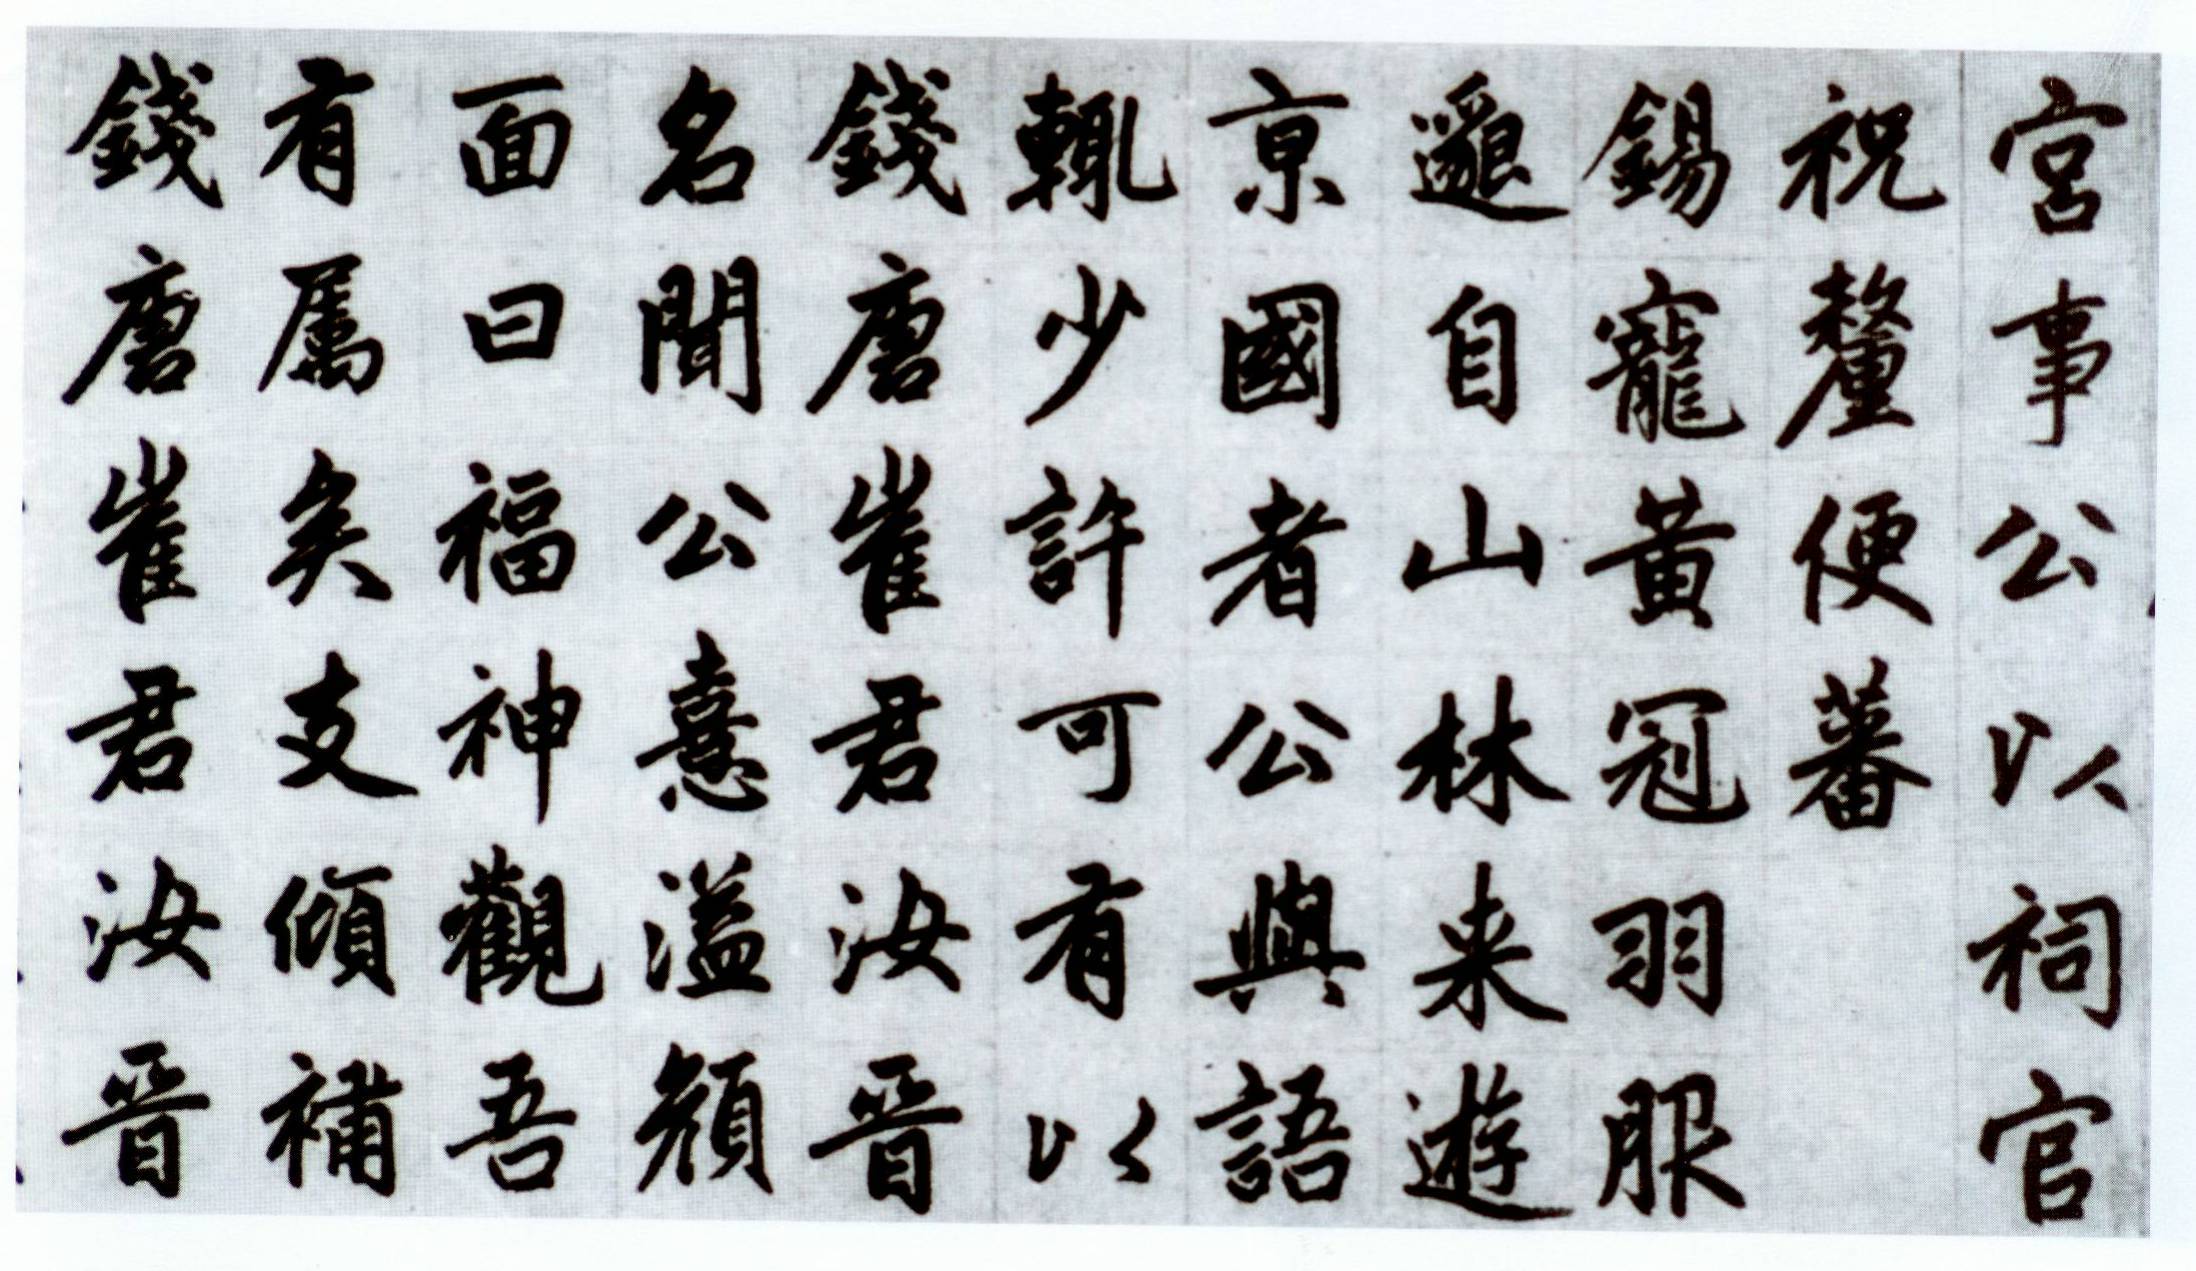 宮事公以祠官
祝釐便蕃
錫寵黃冠羽服
邈自山林来遊
京國者公與語
輒少許可有以
錢唐崔君汝晉
名聞公憙溢顏
面曰福神觀吾
有屬矣支傾補
錢唐崔君汝晉